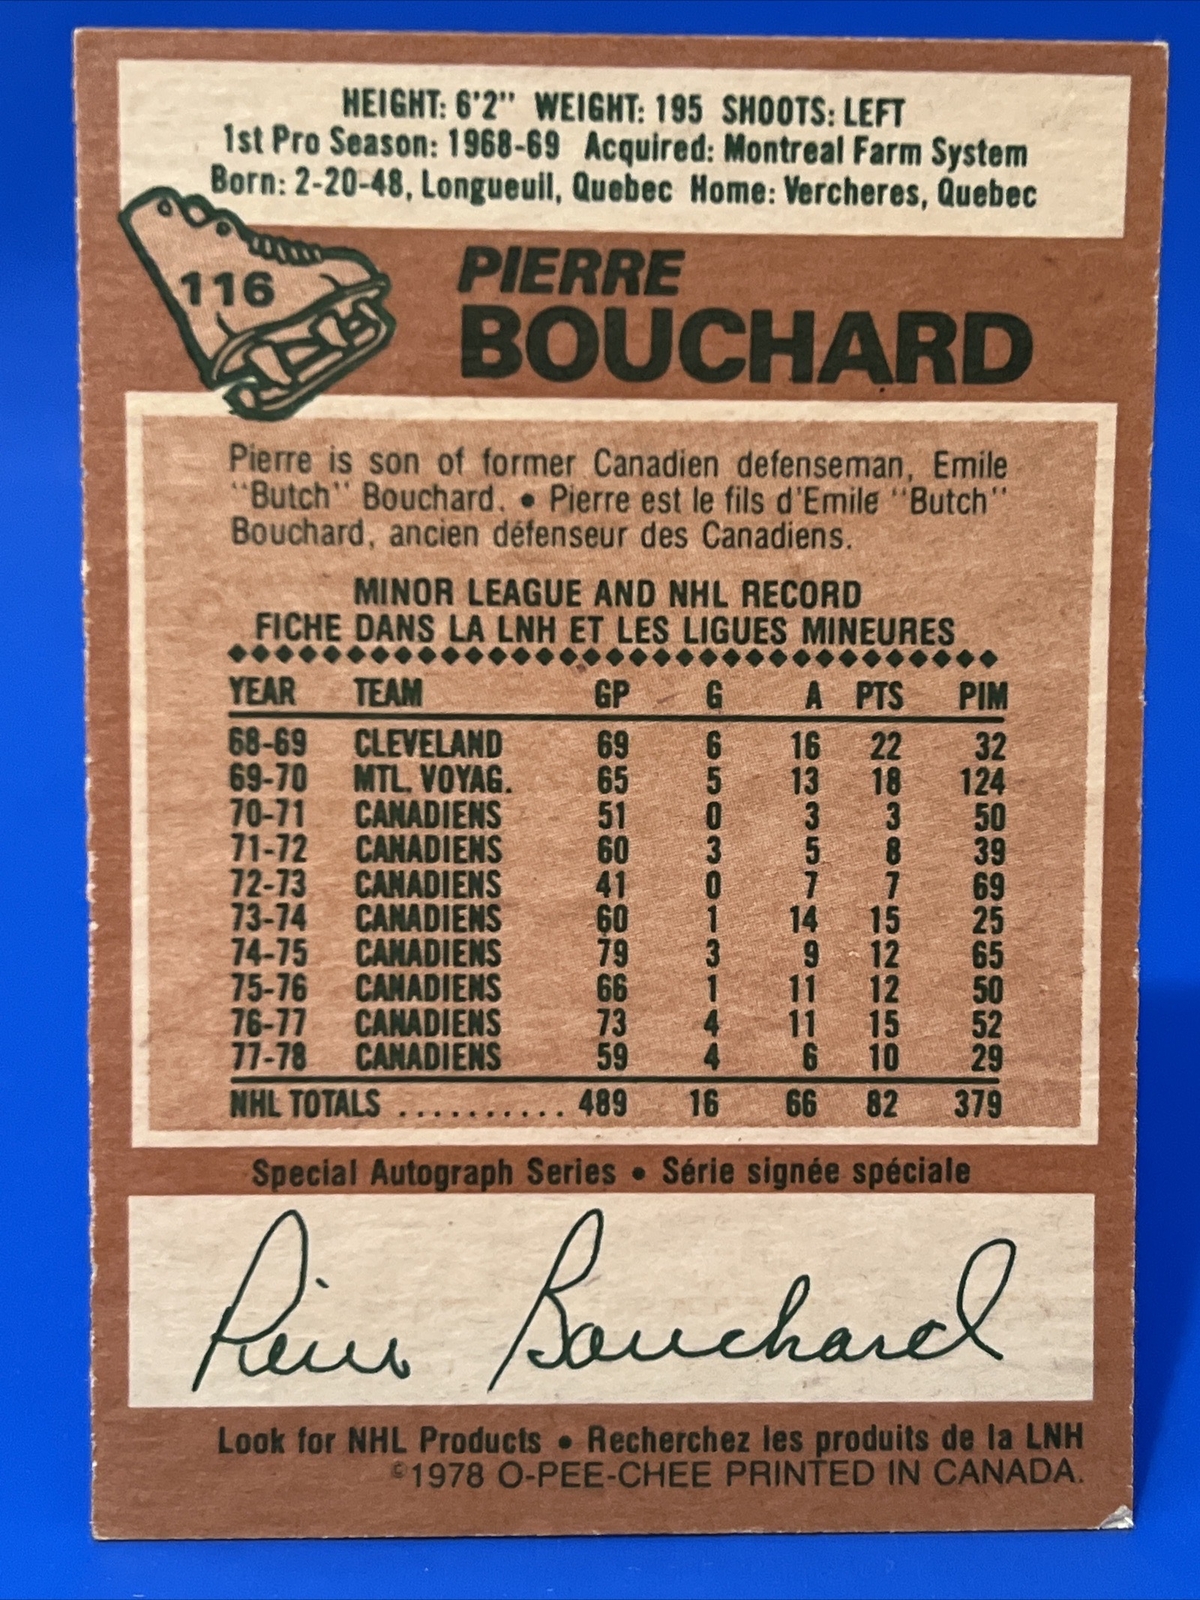 HEIGHT: 6'2" WEIGHT: 195 SHOOTS: LEFT
1st Pro Season: 1968-69 Acquired: Montreal Farm System
Born: 2-20-48, Longueuil, Quebec Home: Vercheres, Quebec
116
PIERRE
BOUCHARD
Pierre is son of former Canadien defenseman, Emile
"Butch" Bouchard. • Pierre est le fils d'Emile "Butch"
Bouchard, ancien défenseur des Canadiens.
MINOR LEAGUE AND NHL RECORD
FICHE DANS LA LNH ET LES LIGUES MINEURES
YEAR TEAM GP G A PTS PIM
68-69 CLEVELAND 69 6 16 22 32
69-70 MTL. VOYAG. 65 5 13 18 124
70-71 CANADIENS 51 0 3 3 50
71-72 CANADIENS 60 3 5 8 39
72-73 CANADIENS 41 0 7 7 69
73-74 CANADIENS 60 1 14 15 25
74-75 CANADIENS 79 3 9 12 65
75-76 CANADIENS 66 1 11 12 50
76-77 CANADIENS 73 4 11 15 52
77-78 CANADIENS 59 4 6 10 29
NHL TOTALS .......... 489 16 66 82 379
Special Autograph Series • Série signée spéciale
Pierre Bouchard
Look for NHL Products • Recherchez les produits de la LNH
©1978 O-PEE-CHEE PRINTED IN CANADA.